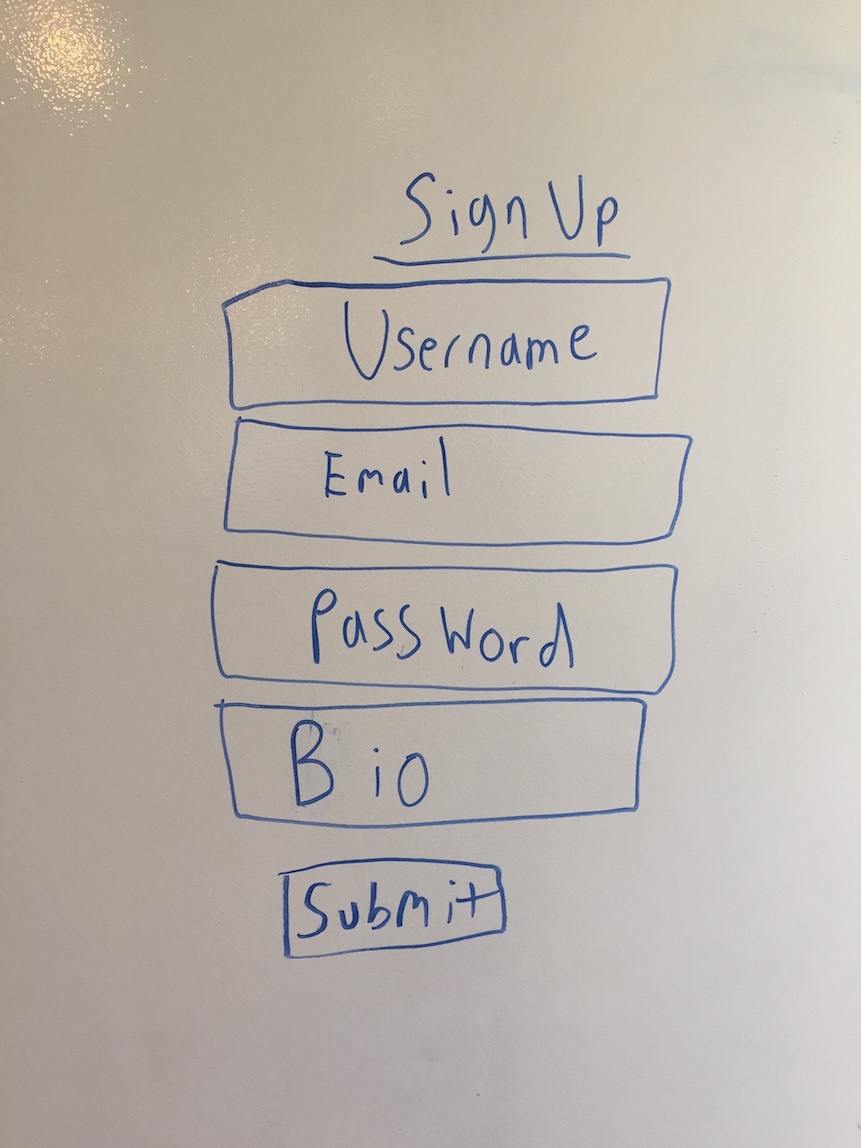 Sign Up
Username
Email
Password
Bio
Submit